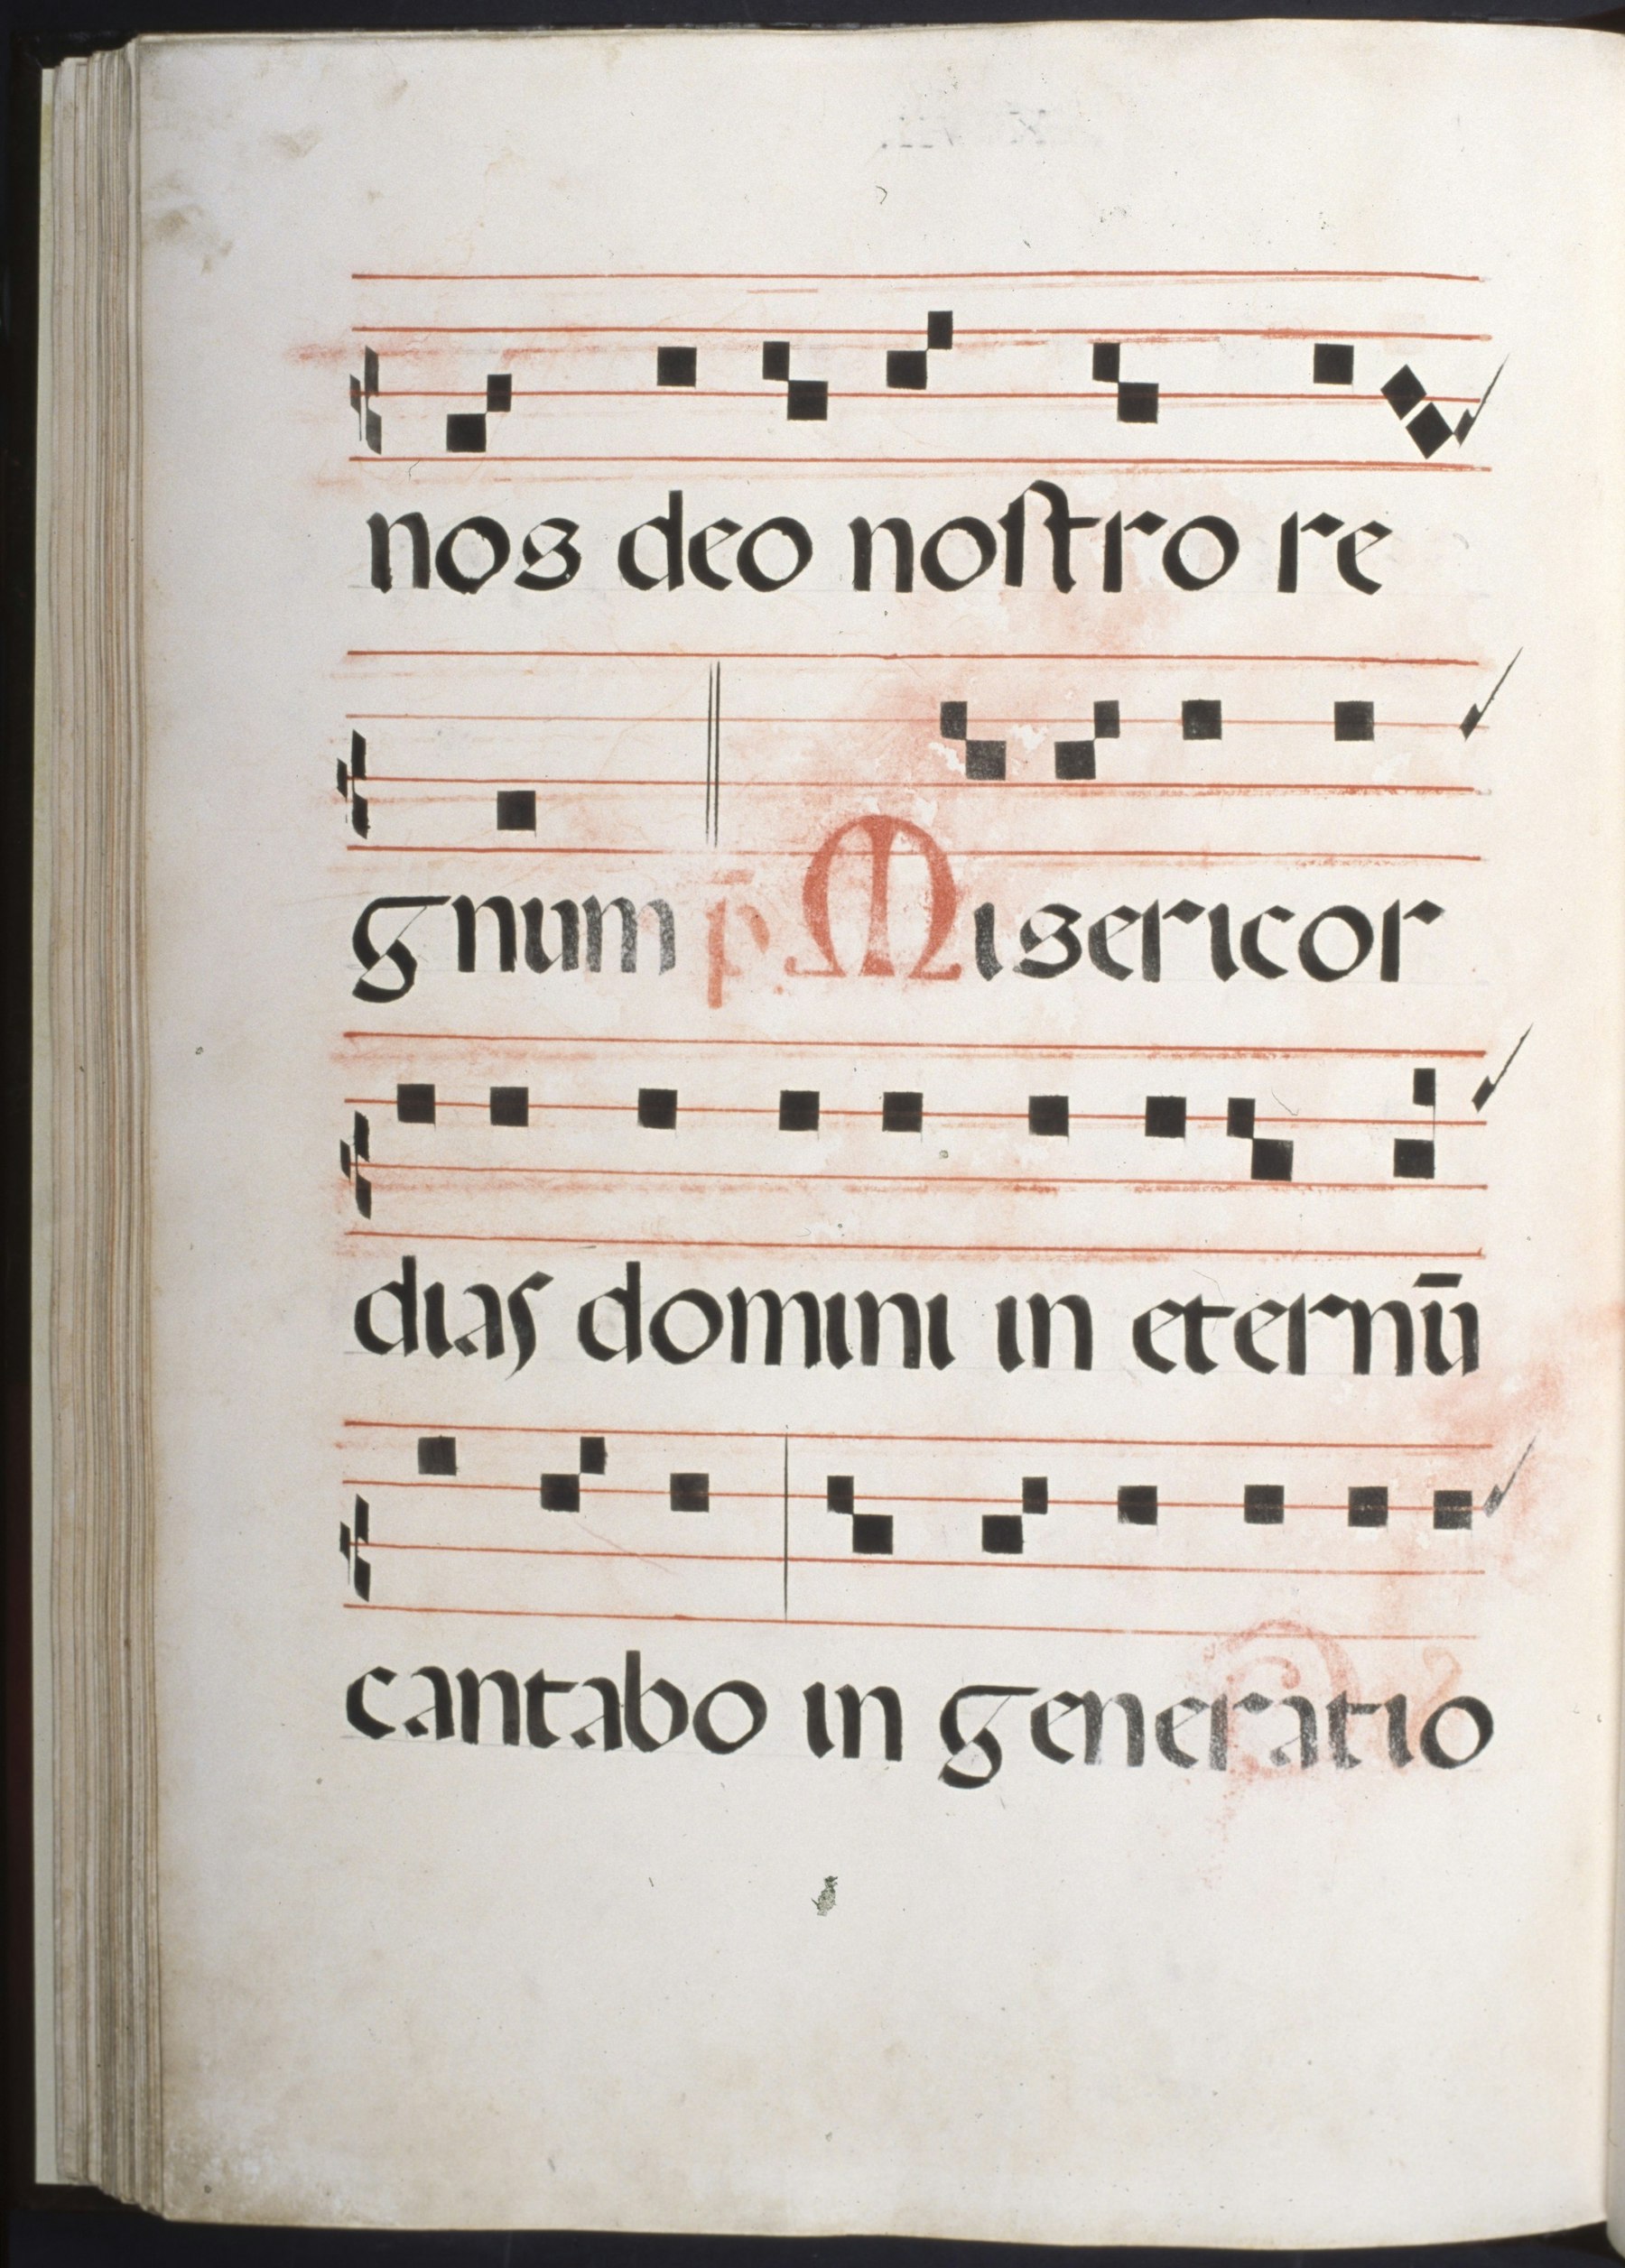 nos deo noſtro re
gnum p̄ Misericor
dias domini in eternū
cantabo in generatio